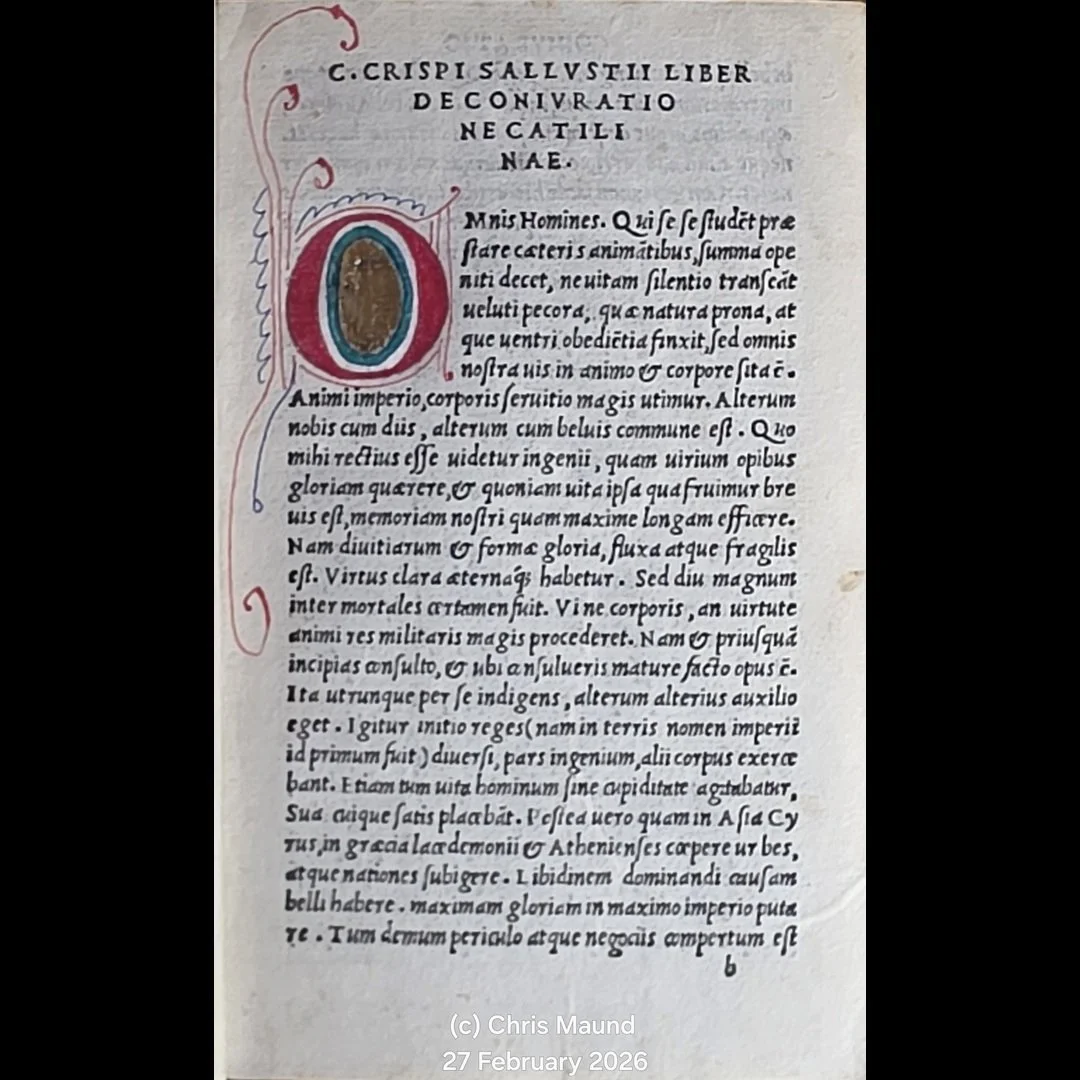 C. CRISPI SALLVSTII LIBER
DE CONIVRATIO
NE CATILI
NAE.
OMnis Homines. Qui se se studēt præ
stare cæteris animātibus, summa ope
niti decet, ne uitam silentio transeāt
ueluti pecora, quæ natura prona, at
que uentri obediētia finxit, sed omnis
nostra uis in animo & corpore sita ē.
Animi imperio, corporis seruitio magis utimur. Alterum
nobis cum diis, alterum cum beluis commune est. Quo
mihi rectius esse uidetur ingenii, quam uirium opibus
gloriam quærere, & quoniam uita ipsa qua fruimur bre
uis est, memoriam nostri quam maxime longam efficere.
Nam diuitiarum & formæ gloria, fluxa atque fragilis
est. Virtus clara æternaq; habetur. Sed diu magnum
inter mortales certamen fuit. Vi ne corporis, an uirtute
animi res militaris magis procederet. Nam & priusquā
incipias consulto, & ubi consulueris mature facto opus ē.
Ita utrunque per se indigens, alterum alterius auxilio
eget. Igitur initio reges (nam in terris nomen imperii
id primum fuit) diuersi, pars ingenium, alii corpus exerce
bant. Etiam tum uita hominum sine cupiditate agitabatur,
Sua cuique satis placebāt. Postea uero quam in Asia Cy
rus, in græcia lacedemonii & Athenienses cœpere urbes,
atque nationes subigere. Libidinem dominandi causam
belli habere. maximam gloriam in maximo imperio puta
re. Tum demum periculo atque negociis compertum est
b
(c) Chris Maund
27 February 2026